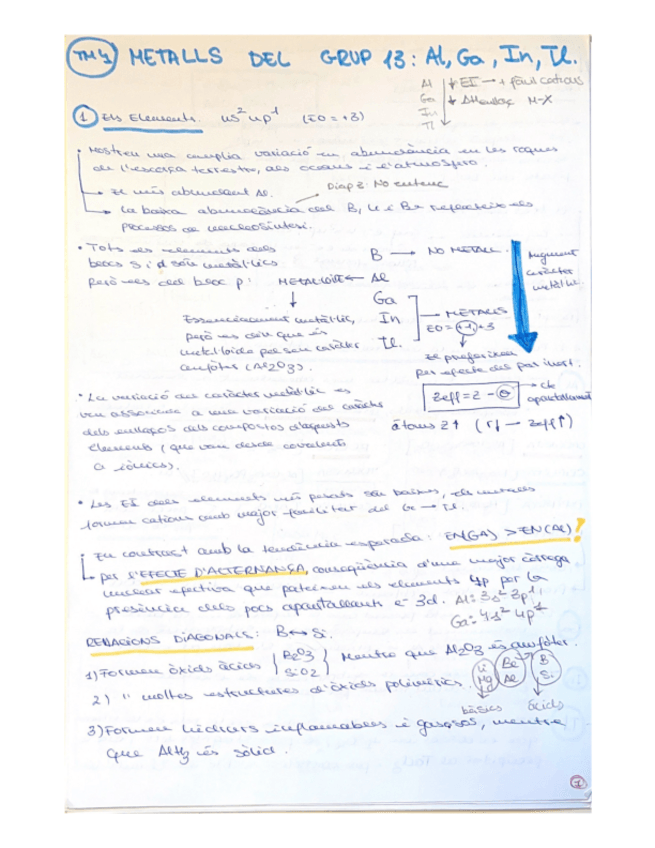 TM4 METALLS DEL GRUP 13: Al, Ga, In, Tl.
Al ↓ EI → + fàcil cations
Ga ↓ ΔH enllaç M-X
In
Tl
① Els Elements. ns² np¹ (EO = +3)
• Mostren una amplia variació en abundància en les roques
de l'escorça terrestre, als oceans i l'atmosfera.
→ El més abundant Al.
Diap 2: No entenc
→ La baixa abundància del B, Li i Be reflecteix els
processos de nucleosíntesi.
• Tots els elements dels
blocs s i d són metàl·lics
però els del bloc p:
B → NO METALL.
METAL·LOIDE ← Al
Ga
In → METALLS
Tl. EO = +1, +3
Augment
caràcter
metàl·lic.
Essencialment metàl·lic,
però es diu que és
metal·loide pel seu caràcter
amfòter (Al2O3).
El prefereixen
per efecte del par inert.
Zeff = Z - σ → cte
apantallament
àtoms Z↑ (r↓ — Zeff↑)
• La variació del caràcter metàl·lic es
veu associada a una variació del caràcter
dels enllaços dels compostos d'aquests
elements (que van desde covalents
a iònics).
• Les EI dels elements més pesats són baixes, els metalls
formen cations amb major facilitat del Ga → Tl.
• En contrast amb la tendència esperada: EN(GA) > EN(Al)!
per l'EFECTE D'ALTERNANÇA, conseqüència d'una major càrrega
nuclear efectiva que pateixen els elements 4p per la
presència dels pocs apantallants e⁻ 3d. Al: 3s² 3p¹,
Ga: 4s² 4p¹
RELACIONS DIAGONALS: B ↔ Si.
1) Formen òxids àcids { B2O3 SiO2 } Mentre que Al2O3 és amfòter.
2) " moltes estructures d'òxids polimèrics.
Li Be B
Mg Al Si
bàsics àcids
3) Formen hidrurs inflamables i gasosos, mentre
que AlH3 és sòlid.
1